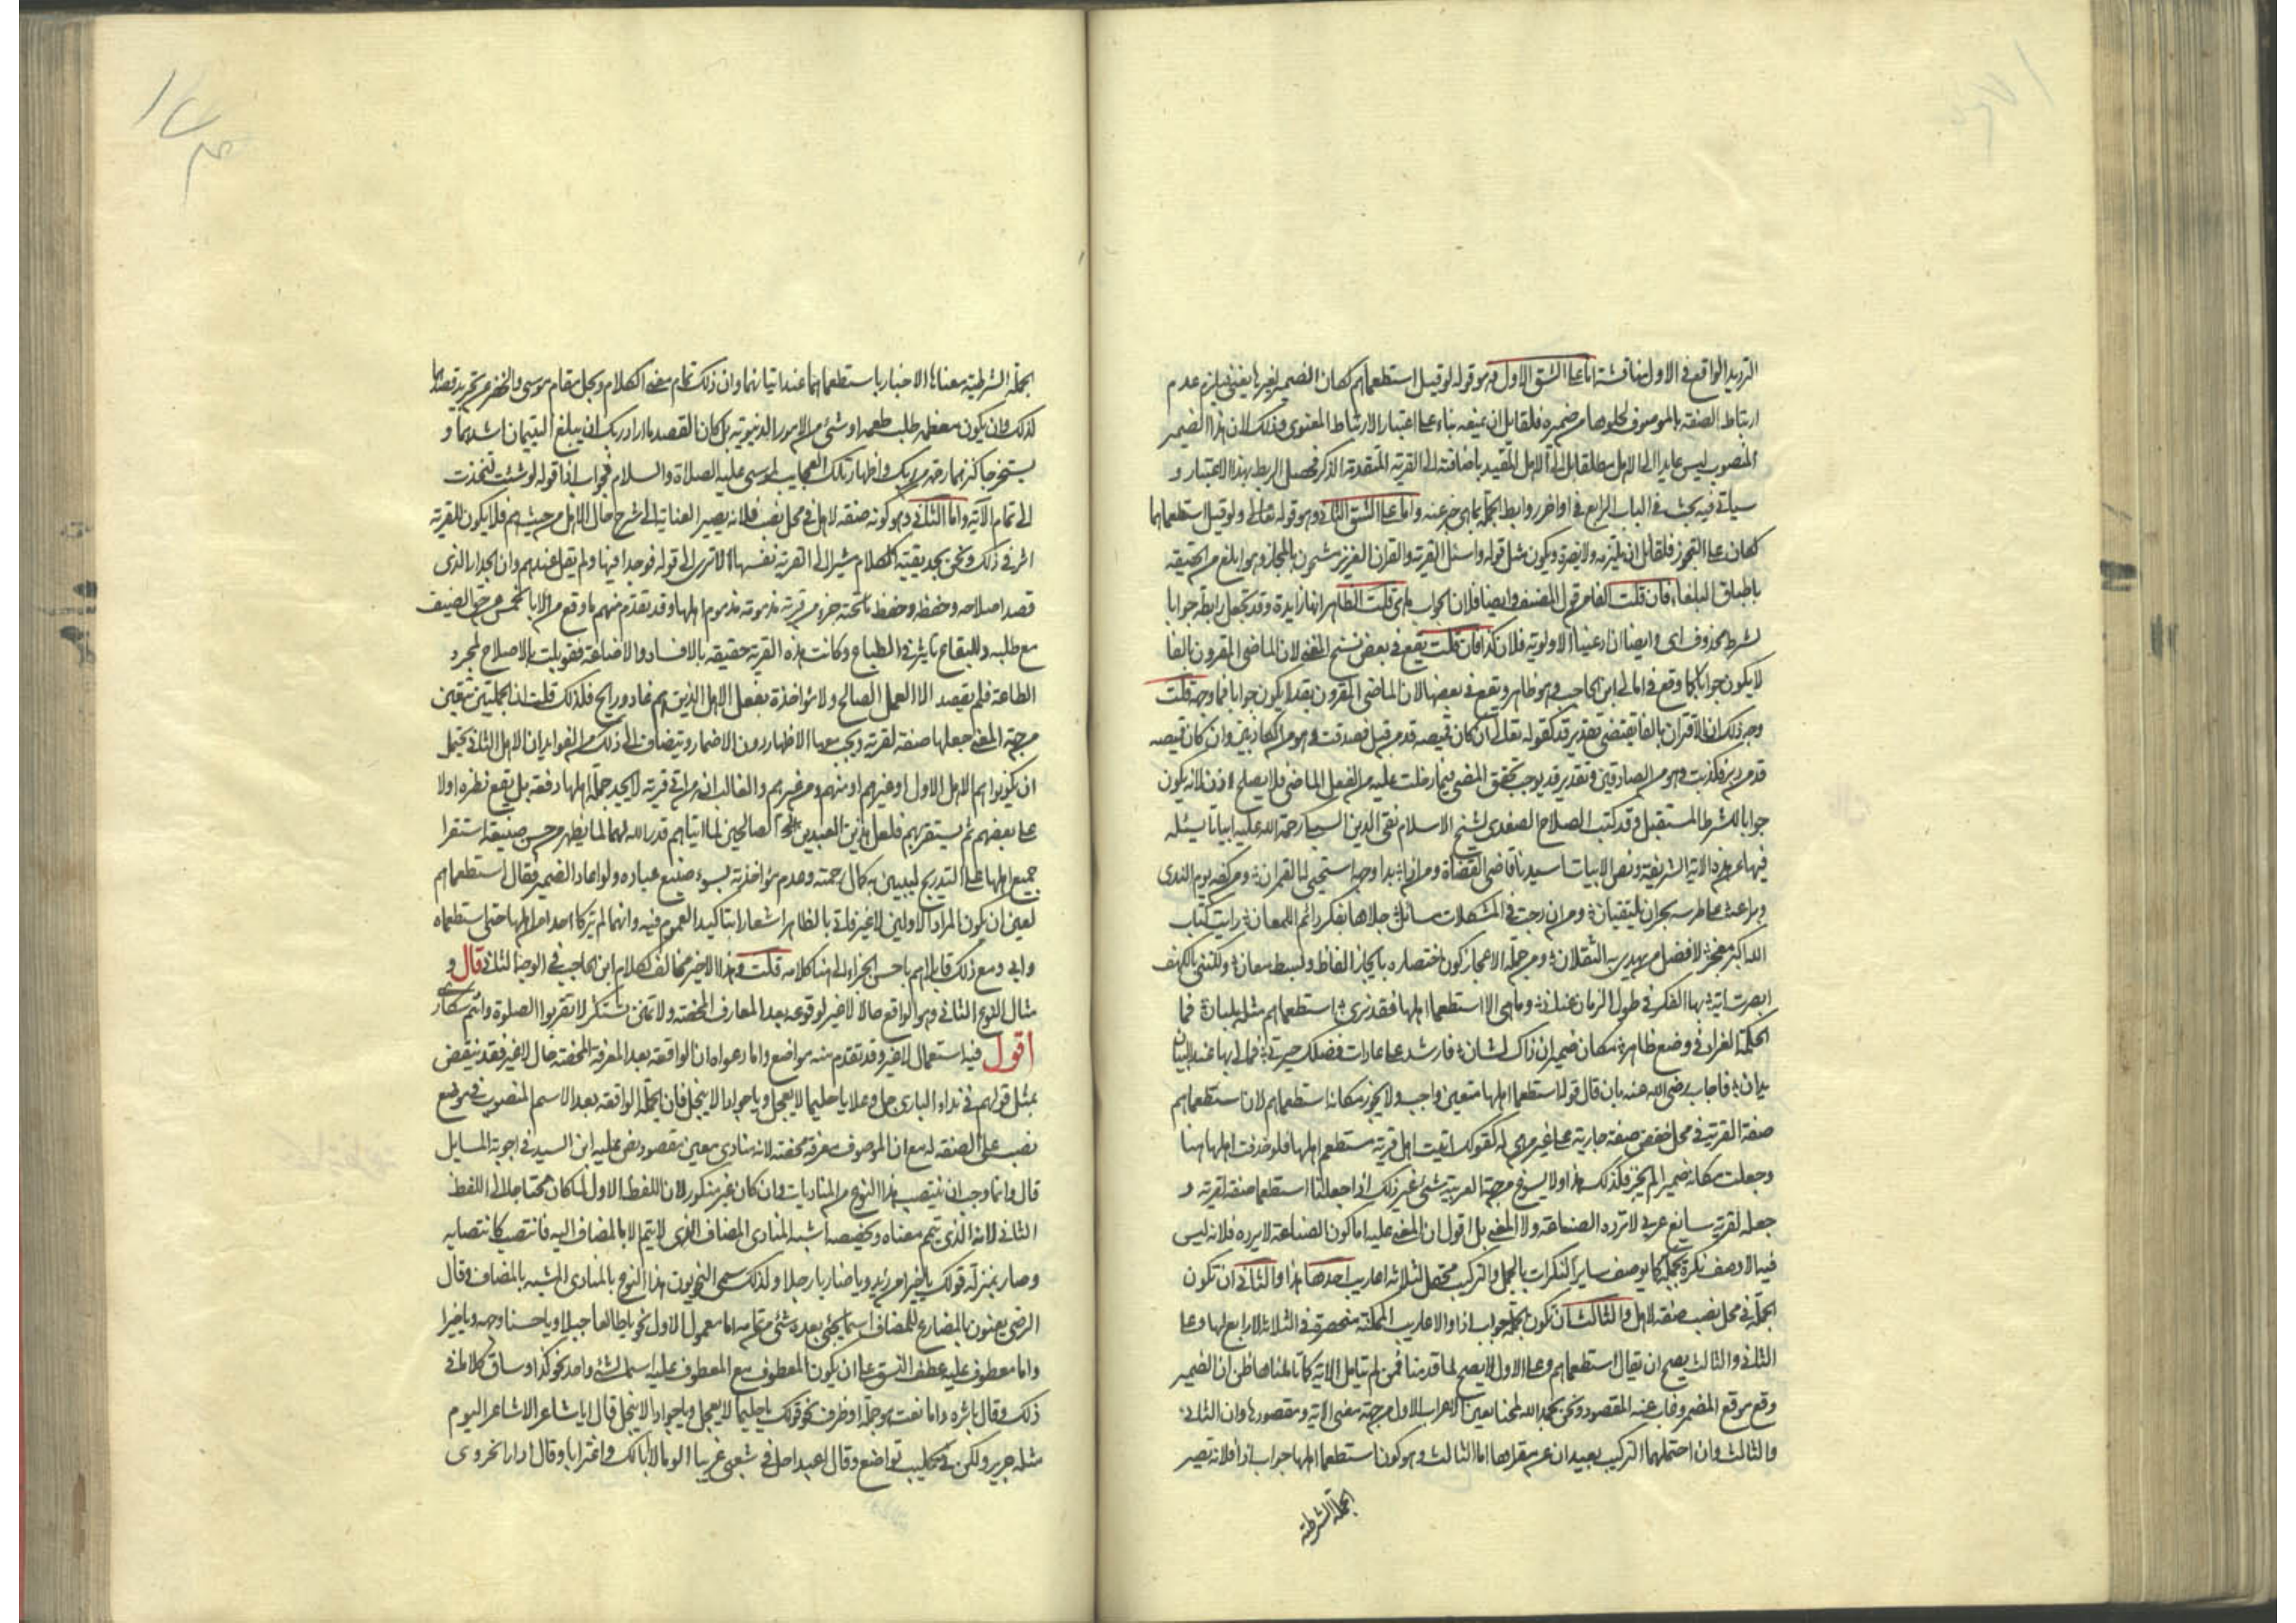 الترديد الواقع في الاول مناقشة اما على الشق الاول وهو قوله لو قيل استطعماهم لكان الضمير لغيرها يعني فيلزم عدم
ارتباط الصفة بالموصوف لخلوها من ضميره فلقائل ان يمنعه بناء على اعتبار الارتباط المعنوي وذلك لان هذا الضمير
المنصوب ليس عايدا الى الاهل مطلقا بل الى الاهل المقيد باضافته الى القرية المتقدمة الذكر فحصل الربط بهذا الاعتبار و
سياتي فيه بحث في الباب الرابع في اواخر روابط الجملة بما هي خبر عنه واما على الشق الثاني وهو قوله تعالى ولو قيل استطعماها
لكان على التجوز فلقائل ان يلتزمه ولا يضره ويكون مثل قوله واسئل القرية والقران العزيز مشحون بالمجاز وهو ابلغ من الحقيقة
باطباق البلغاء فان قلت الفا من قول المصنف وايضا فلان الجواب ما هي قلت الظاهر انها زايدة وقد تجعل رابطة جوابا
لشرط محذوف اي وايضا ان ادعينا الاولوية فلان كذا فان قلت يقع في بعض نسخ المغني لان الماضي المقرون بالفا
لا يكون جوابا كما وقع في امالي ابن الحاجب وهو ظاهر ويقع في بعضها لان الماضي المقرون بقد لا يكون جوابا فما وجهه قلت
وجه ذلك ان الاقتران بالفا يقتضي تقدير قد كقوله تعالى ان كان قميصه قد من قبل فصدقت وهو من الكاذبين وان كان قميصه
قد من دبر فكذبت وهو من الصادقين وتقدير قد يوجب تحقق المضي فيما دخلت عليه من الفعل الماضي فلا يصلح اذن لانه يكون
جوابا للشرط المستقبل وقد كتب الصلاح الصفدي لشيخ الاسلام تقي الدين السبكي رحمة الله عليه ابياتا يسئله
فيها عن هذه الاية الشريفة ونص الابيات اسيدنا قاضي القضاة ومن اذا بدا وجهه استحيى له القمران ومن كفه يوم الندى
ويراعه على طرسه بحران يلتقيان ومن ان دجت في المشكلات مسائل جلاها بفكر دائم اللمعان رايت كتاب
الله اكبر معجز لافضل من يهدى به الثقلان ومن جملة الاعجاز كون اختصاره بايجاز الفاظ وبسط معان ولكنني بالكهف
ابصرت اية بها الفكر في طول الزمان عناني وما هي الا استطعما اهلها فقد نرى استطعماهم مثله ببيان فما
الحكمة الغراء في وضع ظاهر مكان ضمير ان ذاك لشان فارشد على عادات فضلك حيرتي فمالي بها عند البيان
يدان فاجاب رضي الله عنه بان قال قوله استطعما اهلها متعين واجب ولا يجوز مكانه استطعماهم لان استطعماهم
صفة القرية في محل خفض صفة جارية على غير من هي له كقولك اتيت اهل قرية مستطعم اهلها فلو حذفت اهلها هنا
وجعلت مكانه ضميرا لم يجز فكذلك هذا ولا يسوغ من جهة العربية شيء غير ذلك اذا جعلنا استطعما صفة لقرية و
جعله لقرية سايغ عربي لا ترده الصناعة ولا المعنى بل اقول ان المعنى عليه اما كون الصناعة لا ترده فلانه ليس
فيه الا وصف نكرة بجملة كما يوصف ساير النكرات بالجمل والتركيب محتمل لثلاثة اعاريب احدها هذا والثاني ان تكون
الجملة في محل نصب صفة لاهل والثالث ان تكون الجملة جواب اذا والاعاريب الممكنة منحصرة في الثلاثة لا رابع لها وعلى
الثاني والثالث يصح ان يقال استطعماهم وعلى الاول لا يصح لما قدمنا فمن لم يتامل الاية كما تاملناها ظن ان الضمير
وقع موقع المضمر وغاب عنه المقصود ونحن بحمد الله لمحنا تعين الاعراب الاول من جهة معنى الاية ومقصودها وان الثاني
والثالث وان احتملهما التركيب بعيدان عن مقرادها اما الثالث وهو كون استطعما اهلها جواب اذا فلانه تصير
الجملة الشرطية
الجملة الشرطية معناها الاخبار باستطعامهما عند اتيانهما وان ذلك تمام معنى الكلام ويجل مقام موسى والخضر عن تجريد قصدهما
لذلك وان يكون معظمه طلب طعمه او شيء من الامور الدنيوية بل كان القصد ما اراد ربك ان يبلغ اليتيمان اشدهما و
يستخرجا كنزهما رحمة من ربك واظهار تلك العجايب لموسى عليه الصلاة والسلام فجواب اذا قوله لو شئت لتخذت
الى تمام الآية واما الثاني وهو كونه صفة لاهل في محل نصب فلانه يصير العناية الى شرح حال الاهل من حيث هم فلا يكون للقرية
اثر في ذلك ونحن نجد بقية الكلام مشيرا الى القرية نفسها الا ترى الى قوله فوجدا فيها ولم يقل عندهم وان الجدار الذي
قصد اصلاحه وحفظه وحفظ ما تحته جزء من قرية مذمومة مذموم اهلها وقد تقدم منهم ما وقع من الابا عن حق الضيف
مع طلبه وللبقاع تاثير في الطباع وكانت هذه القرية حقيقة بالافساد والاضاعة فقوبلت بالاصلاح لمجرد
الطاعة فلم يقصد الا العمل الصالح ولا مؤاخذة بفعل الاهل الذين هم غاد ورايح فلذلك قلت ان الجملتين يتعين
من جهة المعنى جعلها صفة لقرية ويجب معها الاظهار دون الاضمار وينضاف الى ذلك من الفوايد ان الاهل الثاني يحتمل
ان يكونوا هم الاهل الاول او غيرهم او منهم ومن غيرهم والغالب ان من اتى قرية لا يجد جملة اهلها دفعة بل يقع نظره اولا
على بعضهم ثم يستقريهم فلعل هذين العبدين الصالحين لما اتياهم قدر الله لهما لما يظهر من حسن صنيعه استقرا
جميع اهلها على التدريج ليبين به كمال رحمته وعدم مؤاخذته بسوء صنيع عباده ولو اعاد الضمير فقال استطعماهم
تعين ان يكون المراد الاولين لا غير فاتى بالظاهر اشعارا بتاكيد العموم فيه وانهما لم يتركا احدا من اهلها حتى استطعماه
وابى ومع ذلك قابلاهم باحسن الجزاء الى هنا كلامه قلت وهذا الاخير مخالف لكلام ابن الحاجب في الوجه الثاني قال و
مثال النوع الثاني وهو الواقع حالا لا غير لوقوعه بعد المعارف المحضة ولا تمنن تستكثر لا تقربوا الصلوة وانتم سكارى
اقول فيه استعمال لا غير وقد تقدم منه مواضع واما دعواه ان الواقعة بعد المعرفة المحضة حال لا غير فقد ينقض
بمثل قولهم في نداء الباري جل وعلا يا حليما لا يعجل ويا جوادا لا يبخل فان الجملة الواقعة بعد الاسم المنصوب في موضع
نصب على الصفة له مع ان الموصوف معرفة محضة لانه منادى معين مقصود نص عليه ابن السيد في اجوبة المسايل
قال وانما وجب ان ينتصب هذا النوع من المناديات وان كان غير منكور لان اللفظ الاول لما كان محتاجا الى اللفظ
الثاني لانه الذي يتمم معناه ويخصصه اشبه المنادى المضاف الذي لا يتم الا بالمضاف اليه فانتصب كانتصابه
وصار بمنزلة قولك يا خيرا من زيد ويا ضاربا رجلا ولذلك سمى النحويون هذا النوع بالمنادى المشبه بالمضاف وقال
الرضي يعنون بالمضارع للمضاف اسما يجئ بعده شئ من تمامه اما معمول الاول نحو يا طالعا جبلا ويا حسنا وجهه ويا خيرا
واما معطوف عليه عطف النسق على ان يكون المعطوف مع المعطوف عليه اسما لشئ واحد نحو كذا وساق كلاما في
ذلك وقال باثره واما نعت هو جملة او ظرف نحو قولك يا حليما لا يعجل ويا جوادا لا يبخل قال ايا شاعرا لا شاعر اليوم
مثله جرير ولكن في كليب تواضع وقال اعبدا حل في شعبى غريبا الوما لا ابا لك واغترابا وقال ادارا بحزوى